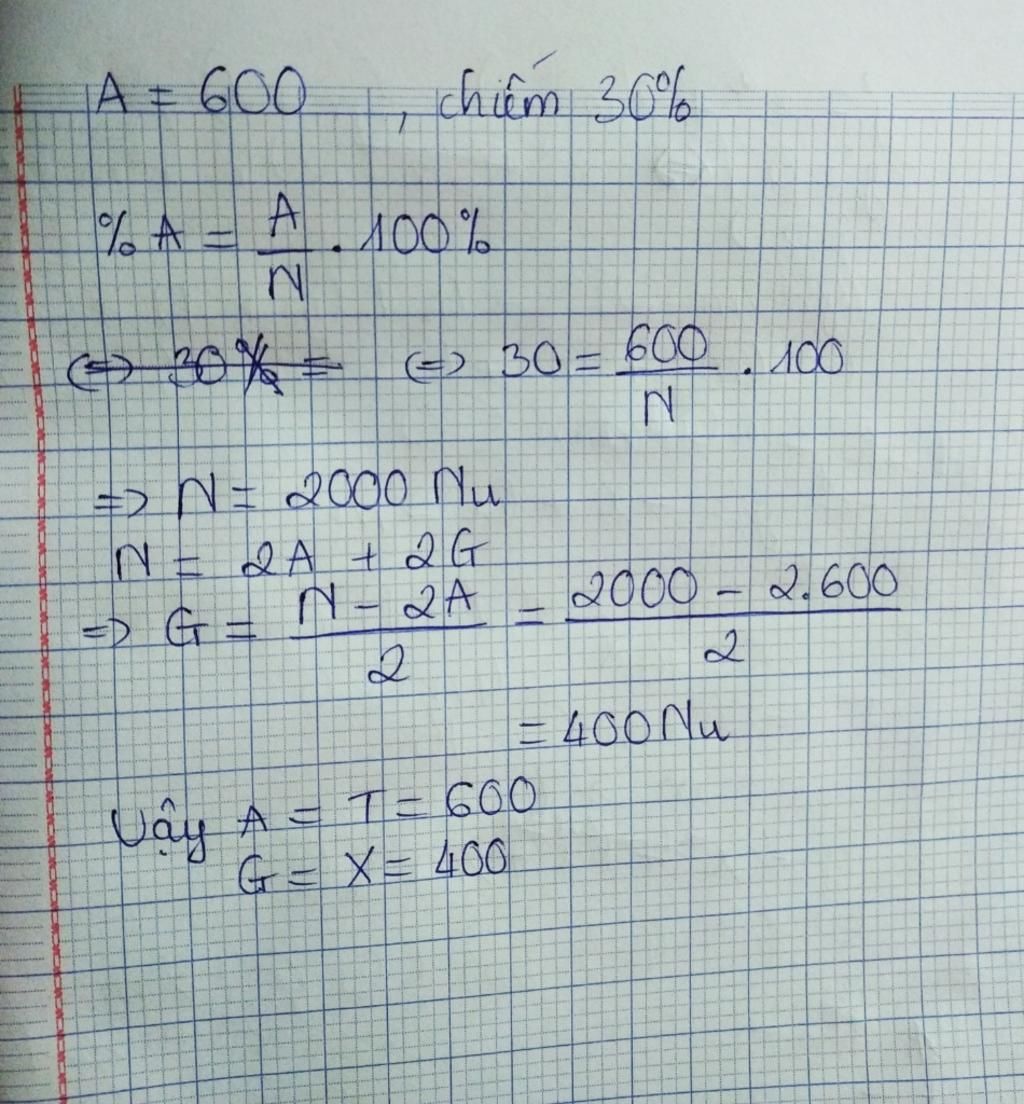 A = 600 , chiếm 30%
% A = A/N . 100%
(=) 30% = (=) 30 = 600/N . 100
=> N = 2000 Nu
N = 2A + 2G
=> G = N - 2A/2 = 2000 - 2.600/2
= 400 Nu
Vậy A = T = 600
G = X = 400